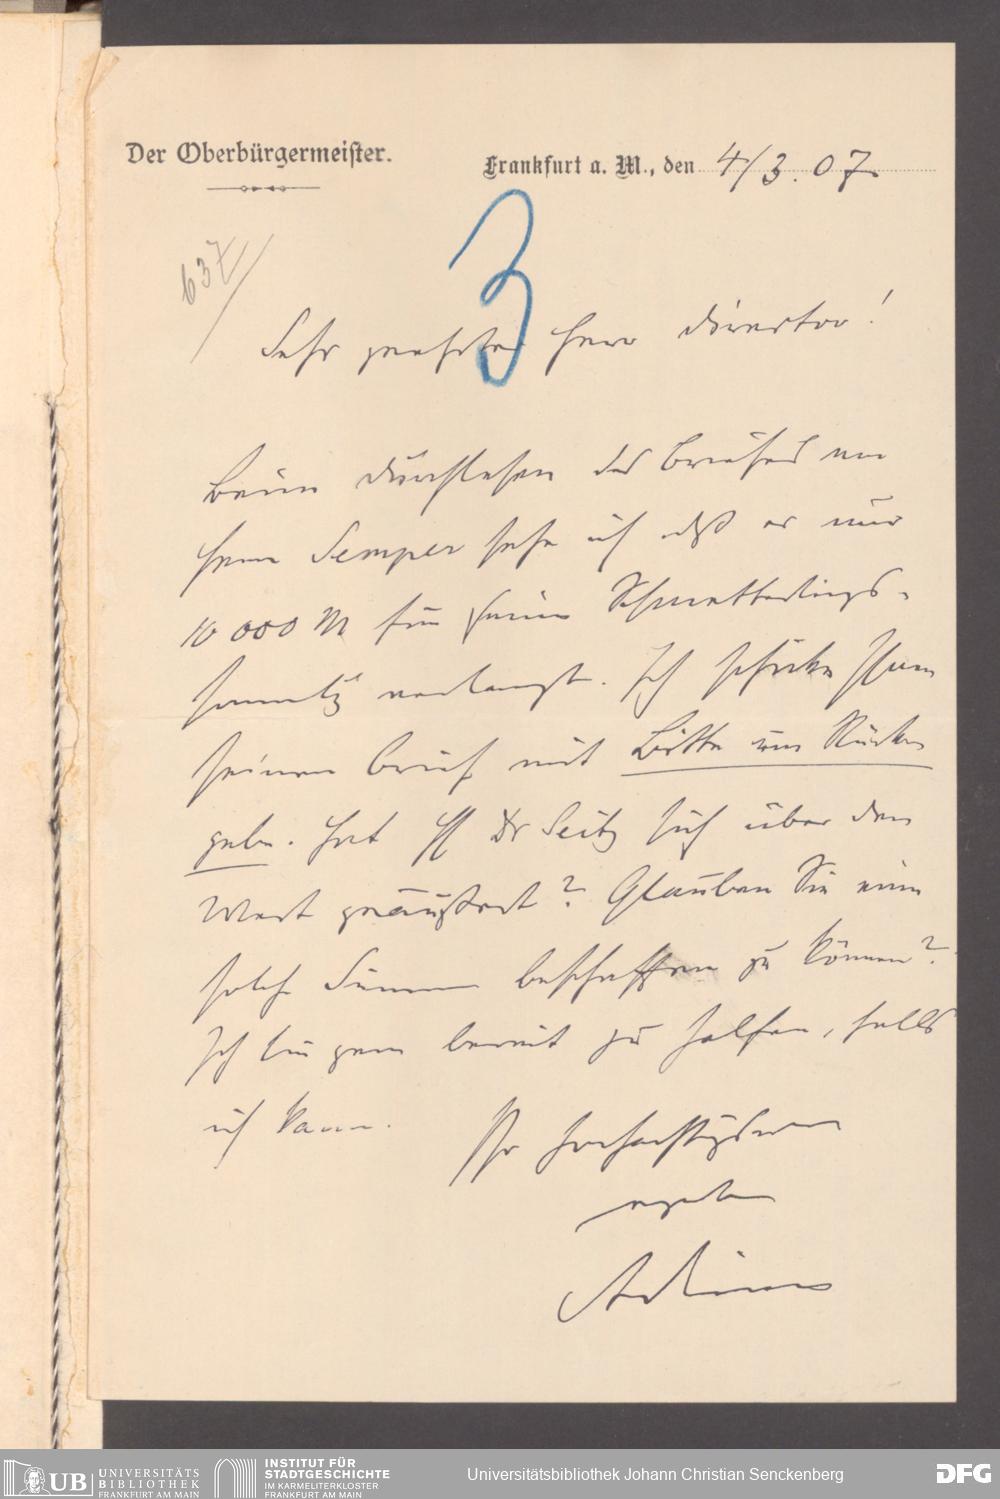 Der Oberbürgermeister.
Frankfurt a. M., den 4/3. 07.
637
3
Sehr geehrter Herr Director!
Beim Durchlesen des Briefes von
Herrn Semper sehe ich daß er nur
10 000 M für seine Schmetterlings-
sammlg verlangt. Ich schicke Ihnen
seinen Brief mit Bitte um Rück
gabe. Hat H Dr Seitz sich über den
Wert geäußert? Glauben Sie eine
solche Summe beschaffen zu können?
Ich bin gern bereit zu helfen, falls
ich kann.
Ihr hochachtungsvoll
ergebener
Adickes
UB UNIVERSITÄTS
BIBLIOTHEK
FRANKFURT AM MAIN
INSTITUT FÜR
STADTGESCHICHTE
IM KARMELITERKLOSTER
FRANKFURT AM MAIN
Universitätsbibliothek Johann Christian Senckenberg
DFG